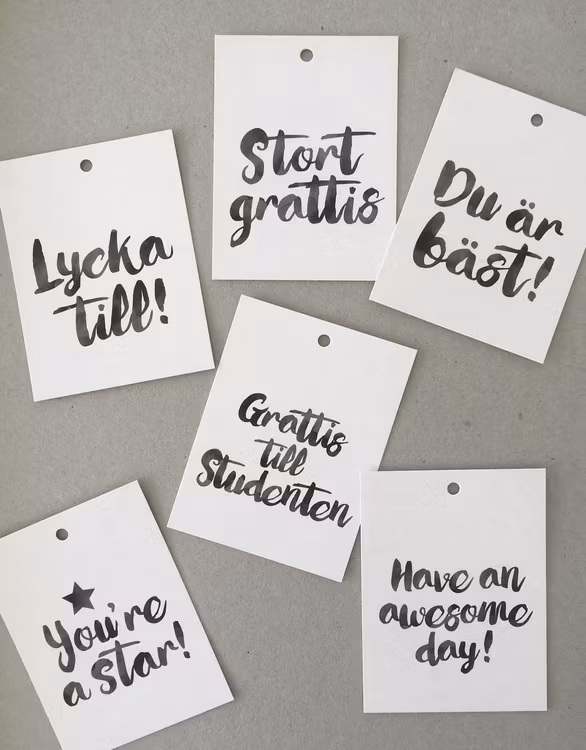 Stort
grattis
Du är
bäst!
Lycka
till!
Grattis
till
Studenten
You're
a star!
Have an
awesome
day!